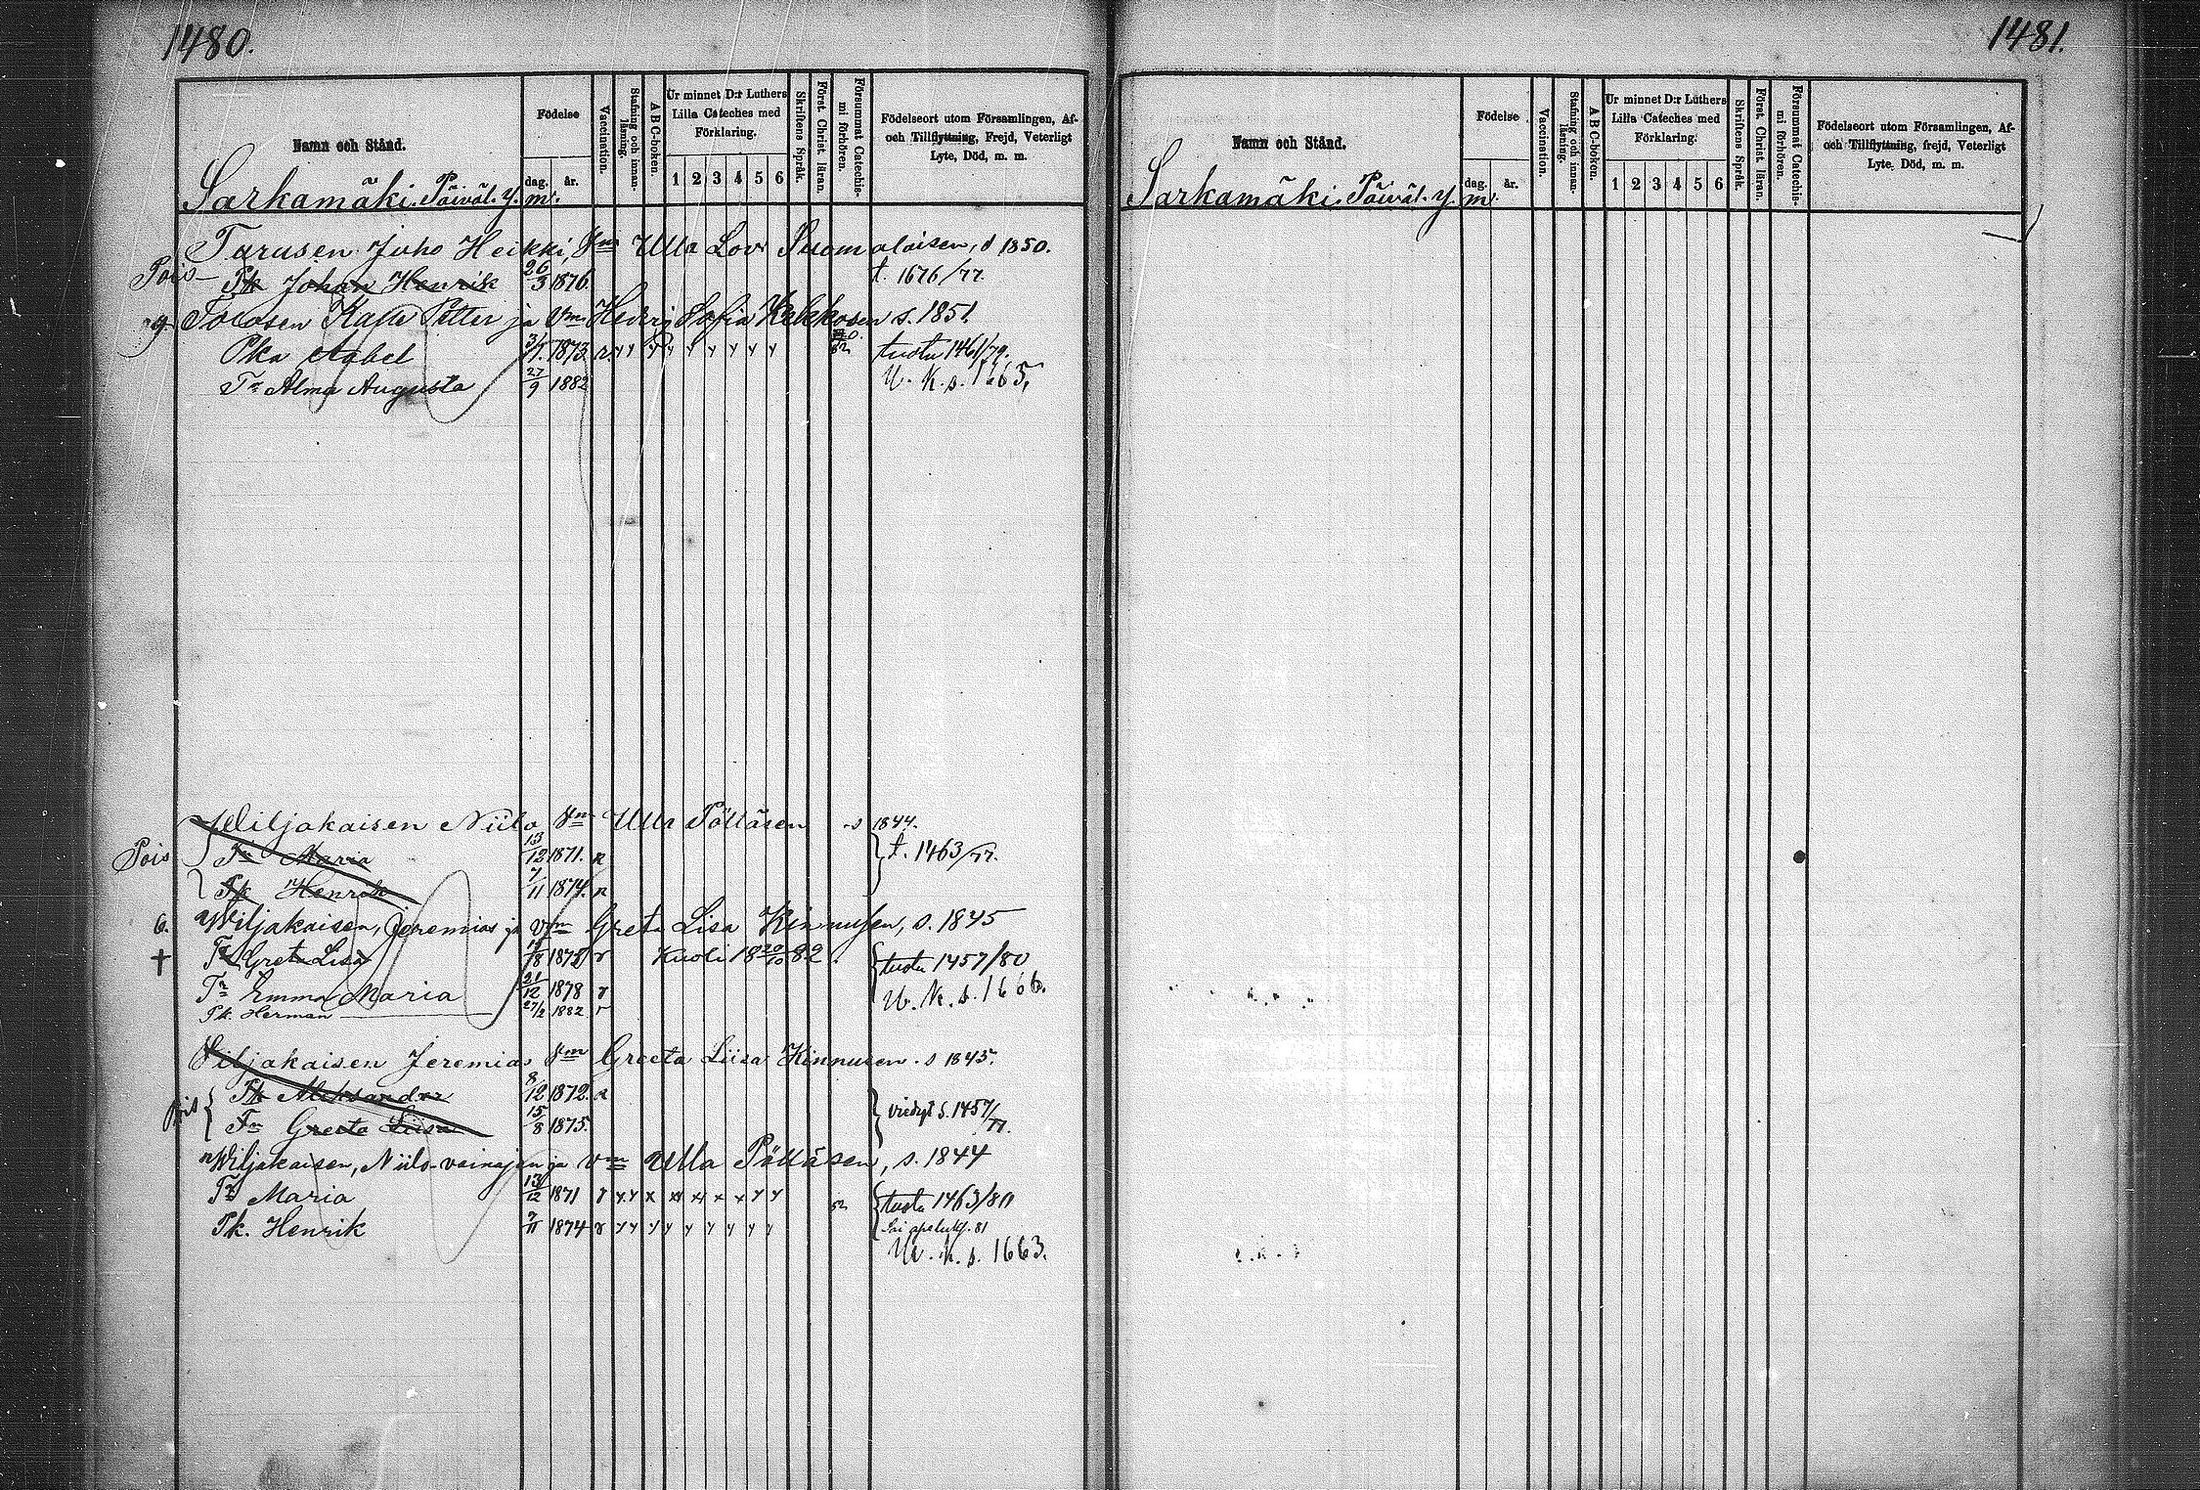 1480.
Namn och Stånd.
Födelse
dag. år.
Vaccination.
Stafning och innanläsning.
ABC-boken.
Ur minnet D:r Luthers Lilla Cateches med Förklaring.
1 2 3 4 5 6
Skriftens Språk.
Först. Christ. läran.
Försummat Catechismi förhören.
Födelseort utom Församlingen, Af-
och Tillflyttning, Frejd, Veterligt
Lyte, Död, m. m.
Sarkamäki. Päiväl. Y. m.
Turusen Juho Heikki, Vm Ulla Lov. Suomalaisen, s 1850.
Pois Pk Johan Henrik 26/3 1876. t. 1676/77.
9. Toivosen Kalle Petter ja Vm Hedvig Sofia s. 1851.
Pka Aabel 1873. r. tuotu 1461/79.
Tr Alma Augusta 27/9 1882 U. K. s. 1665.
Wiljakaisen Niilo Vm Ulla Pölläsen s 1844.
Pois Tr Maria 13/12 1871. r t. 1463/77.
Pk Henrik 7/11 1874. r
6. Wiljakaisen, Jeremias ja Vm Greta Lisa Kinnusen, s. 1845
† Tr Greta Lisa 15/8 1875 r Kuoli 18 20/10 82. tuotu 1457/80
Tr Emma Maria 21/12 1878 r U. K. s. 1666.
Pk. Herman 27/2 1882 r
Wiljakaisen Jeremias Vm Greeta Liisa Kinnusen. s 1845.
Pois Pk Aleksander 8/12 1872. r viedyt s. 1457/77.
Tr Greeta Liisa 15/8 1875.
Wiljakaisen, Niilo-vainajan ja Vm Ulla Pölläsen, s. 1844
Tr Maria 13/12 1871 r tuotu 1463/80
Pk. Henrik 7/11 1874 r 81
U. K. s. 1663.
1481.
Namn och Stånd.
Födelse
dag. år.
Vaccination.
Stafning och innanläsning.
ABC-boken.
Ur minnet D:r Luthers Lilla Cateches med Förklaring.
1 2 3 4 5 6
Skriftens Språk.
Först. Christ. läran.
Försummat Catechismi förhören.
Födelseort utom Församlingen, Af-
och Tillflyttning, frejd, Veterligt
Lyte, Död, m. m.
Sarkamäki. Päiväl. Y. m.